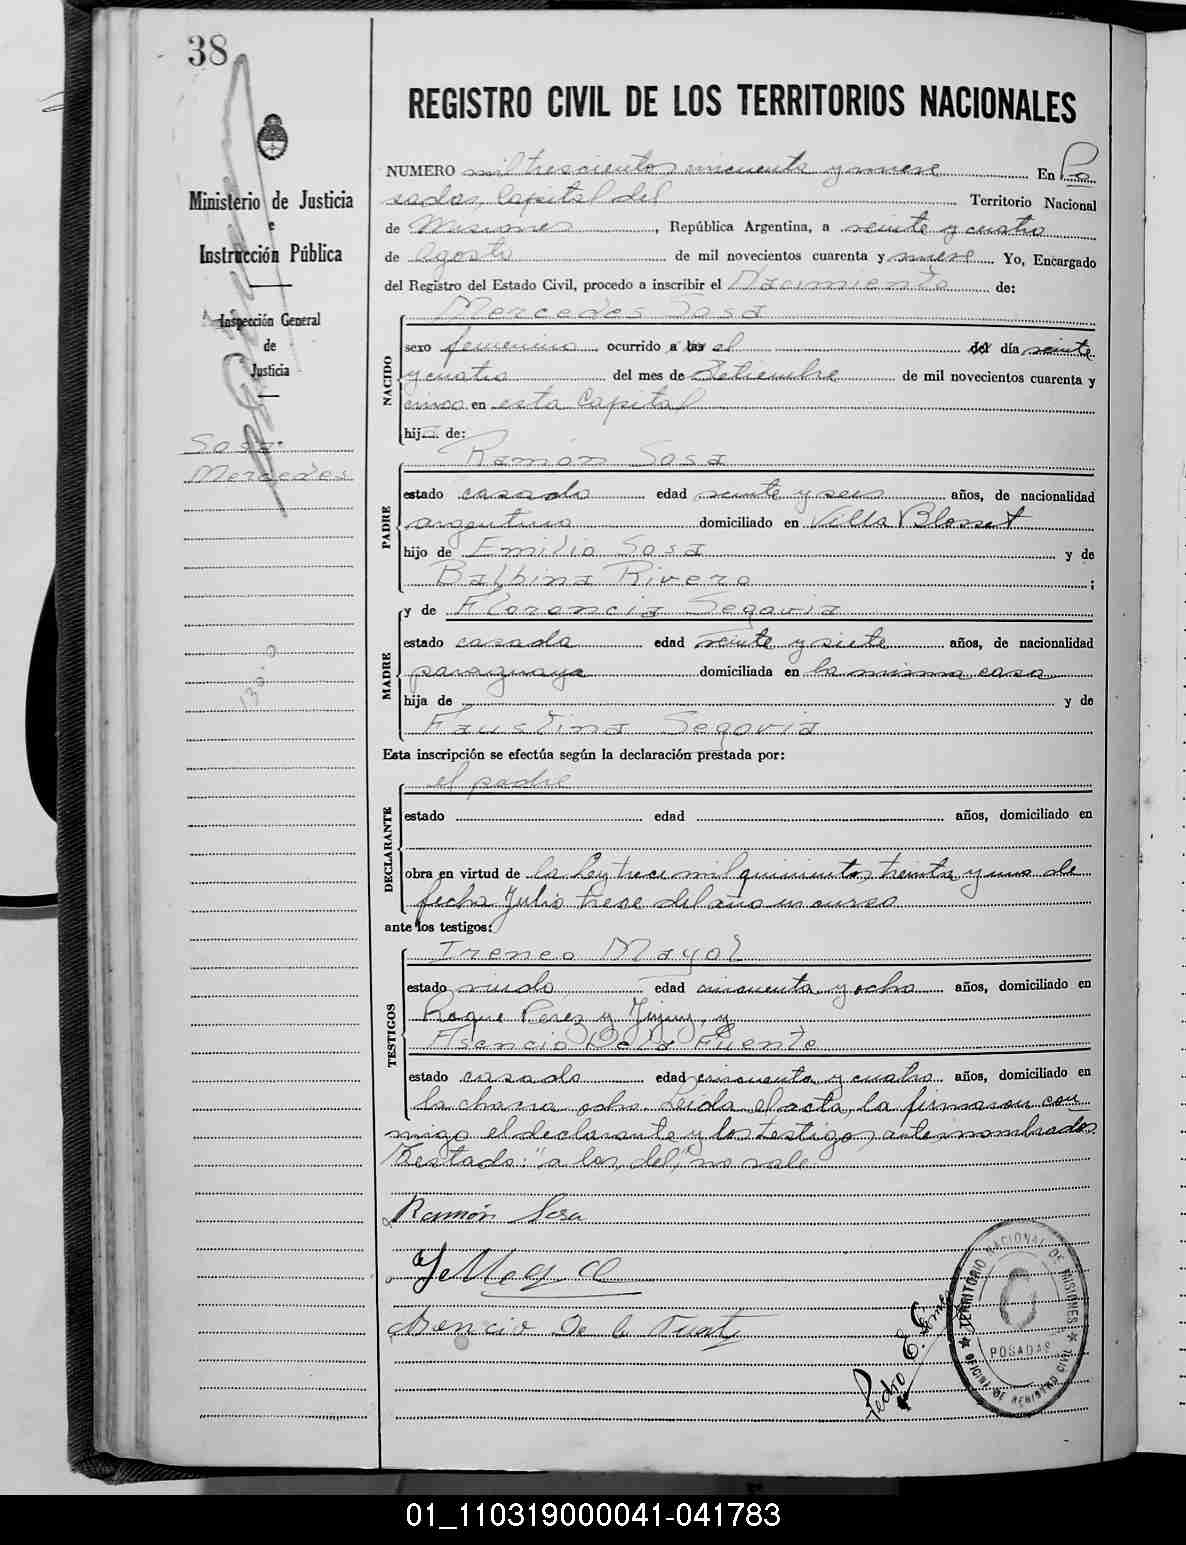 38
Ministerio de Justicia
e
Instrucción Pública
Inspección General
de
Justicia
Sosa
Mercedes
130.0
REGISTRO CIVIL DE LOS TERRITORIOS NACIONALES
NUMERO mil trescientos cincuenta y nueve En Po
sadas, Capital del Territorio Nacional
de Misiones, República Argentina, a veinte y cuatro
de Agosto de mil novecientos cuarenta y nueve Yo, Encargado
del Registro del Estado Civil, procedo a inscribir el Nacimiento de:
NACIDO
Mercedes Sosa
sexo femenino ocurrido a las el del día veinte
y cuatro del mes de Setiembre de mil novecientos cuarenta y
cinco en esta Capital
hija de:
PADRE
Ramón Sosa
estado casado edad veinte y seis años, de nacionalidad
argentino domiciliado en Villa Blosset
hijo de Emilio Sosa y de
Balbina Rivero ;
MADRE
y de Florencia Segovia
estado casada edad veinte y siete años, de nacionalidad
paraguaya domiciliada en la misma casa
hija de y de
Faustina Segovia
Esta inscripción se efectúa según la declaración prestada por:
DECLARANTE
el padre
estado edad años, domiciliado en
obra en virtud de la Ley trece mil quinientos treinta y uno de
fecha Julio trece del año en curso
ante los testigos:
TESTIGOS
Ireneo Mayol
estado viudo edad cincuenta y ocho años, domiciliado en
Roque Perez y Jujuy, y
Asencio De la Fuente
estado casado edad cincuenta y cuatro años, domiciliado en
la chacra ocho. Leida el acta, la firmaron con
migo el declarante y los testigos antes nombrados.
Testado: "a las, del," no vale.
Ramón Sosa
Asencio De la Fuente
Pedro E.
TERRITORIO NACIONAL DE MISIONES
POSADAS
OFICINA DE REGISTRO CIVIL
01_110319000041-041783